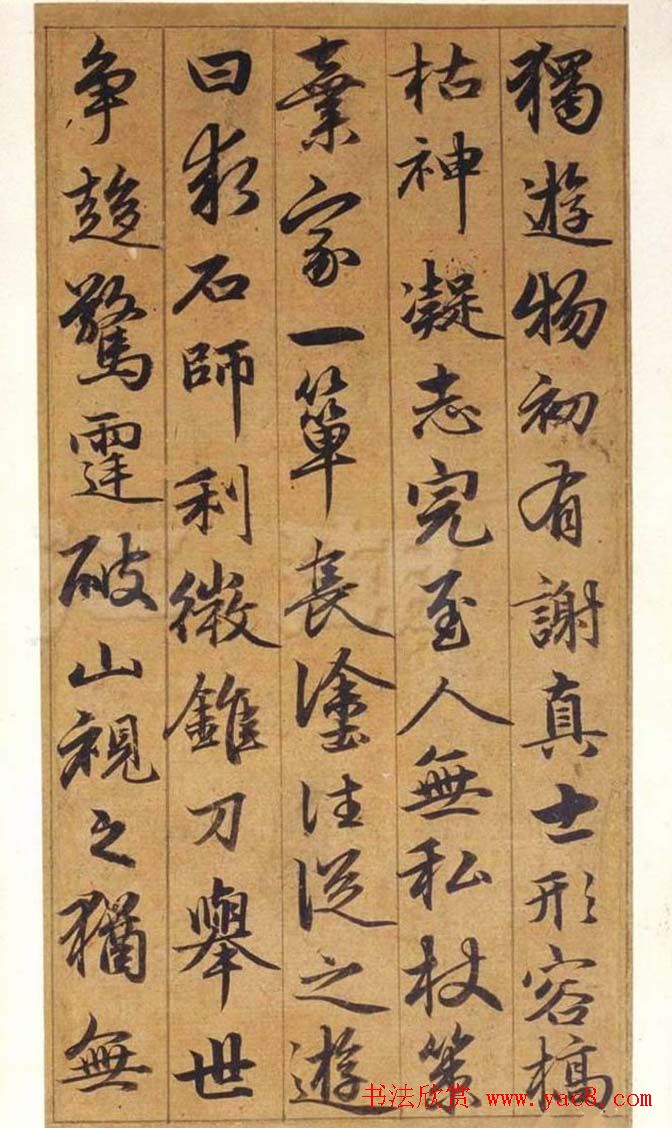 獨遊物初有謝真士形容槁
枯神凝志完至人無私杖策
棄家一簞長塗往從之遊
曰求石師利微錐刀舉世
争趍驚霆破山視之猶無
书法欣赏 www.yac8.com